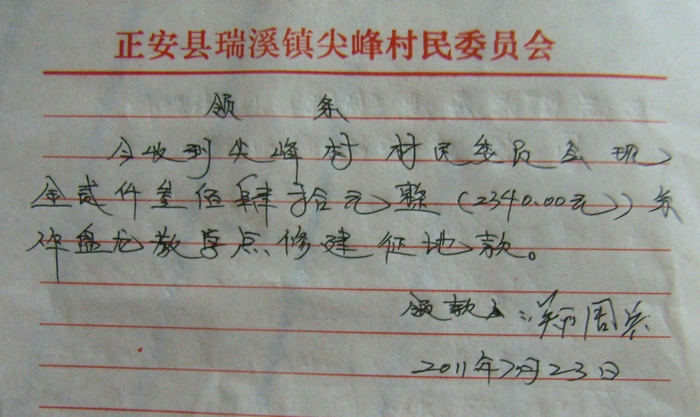 正安县瑞溪镇尖峰村民委员会
领条
今收到尖峰村村民委员会现
金贰仟叁佰肆拾元整(2340.00元))系
冲盘龙教学点修建征地款。
领款人:郑周兵
2011年7月23日